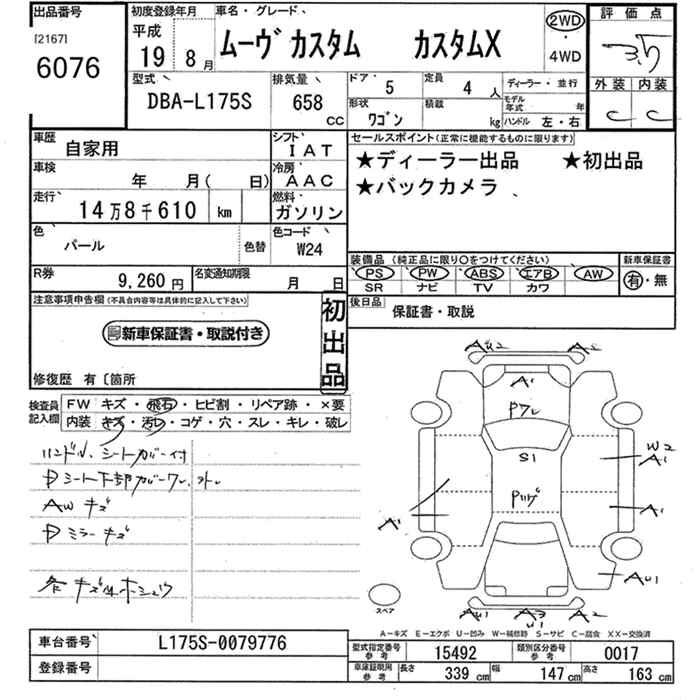 出品番号 初度登録年月 車名・グレード、 評価点
[2167] 平成 ムーヴ カスタム カスタムX 2WD 3.5
6076 19 8月 ・ 4WD
型式 排気量 ドア 5 定員 4人 ディーラー・並行 外装 内装
DBA-L175S 658 cc 形状 ワゴン 積載 kg モデル年式 年 C C
ハンドル 左・右
車歴 自家用 シフト IAT セールスポイント(正常に機能するものに限ります)
車検 年 月( 日) 冷房 AAC ★ディーラー出品 ★初出品
走行 14万8千610 km 燃料 ガソリン ★バックカメラ
色 パール 色替 色コード W24
装備品(純正品に限り○をつけてください) 新車保証書
PS PW ABS エアB AW 有・無
SR ナビ TV カワ
R券 9,260円 名変通知期限 月 日
注意事項申告欄(不具合内容等は具体的に記入して下さい) 初出品 後日品 保証書・取説
新車保証書・取説付き
修復歴 有〔箇所
検査員記入欄 FW キズ・飛石・ヒビ割・リペア跡・×要
内装 キズ・汚レ・コゲ・穴・スレ・キレ・破レ
ハンドル、シートカバー付
シート下部カバーワレ、
AW キズ
ミラーキズ
各キズ
AU2 A2
A1
Pワレ
S1
W2
A1
A1 A1
AU1
スペア
AU1 A3 A2
U1
A-キズ E-エクボ U-凹み W-補修跡 S-サビ C-腐食 XX-交換済
車台番号 L175S-0079776 型式指定番号 参考 15492 類別区分番号 参考 0017
登録番号 車庫証明用 参考 長さ 339cm 幅 147cm 高さ 163cm